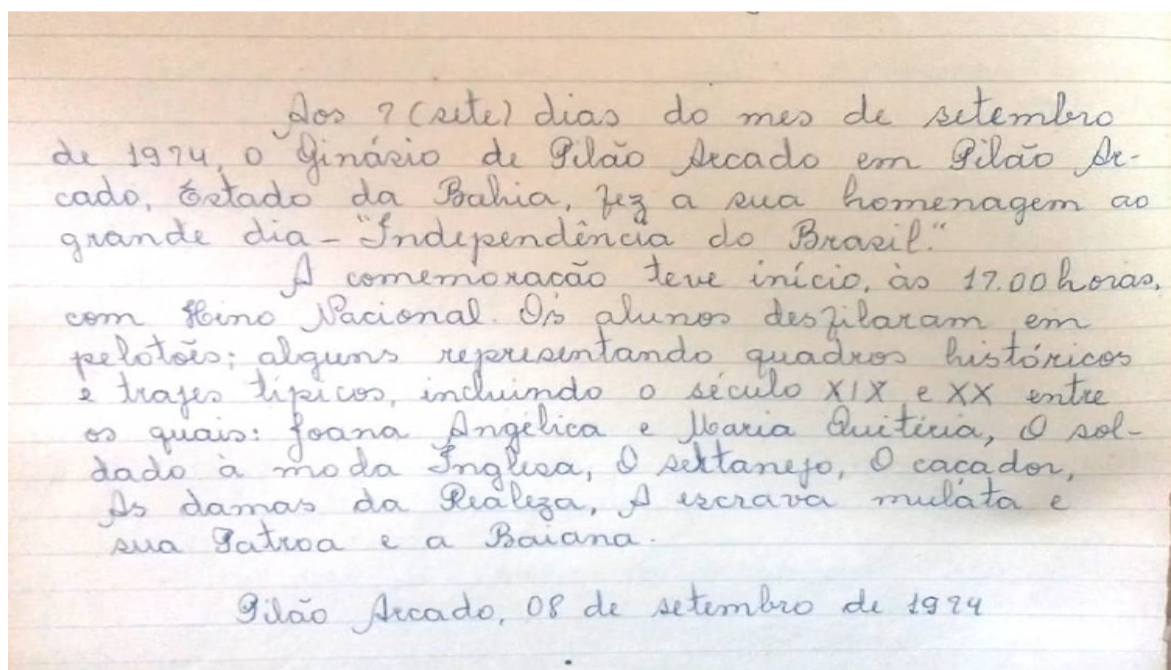 Aos 7 (sete) dias do mes de setembro
de 1974, o Ginásio de Pilão Arcado em Pilão Ar-
cado, Estado da Bahia, fez a sua homenagem ao
grande dia - "Independência do Brasil."
A comemoração teve início, às 17.00 horas,
com Hino Nacional. Os alunos desfilaram em
pelotões; alguns representando quadros históricos
e trajes típicos, incluindo o século XIX e XX entre
os quais: Joana Angélica e Maria Quitéria, O sol-
dado à moda Inglesa, O sertanejo, O caçador,
As damas da Realeza, A escrava mulata e
sua Patroa e a Baiana.
Pilão Arcado, 08 de setembro de 1974